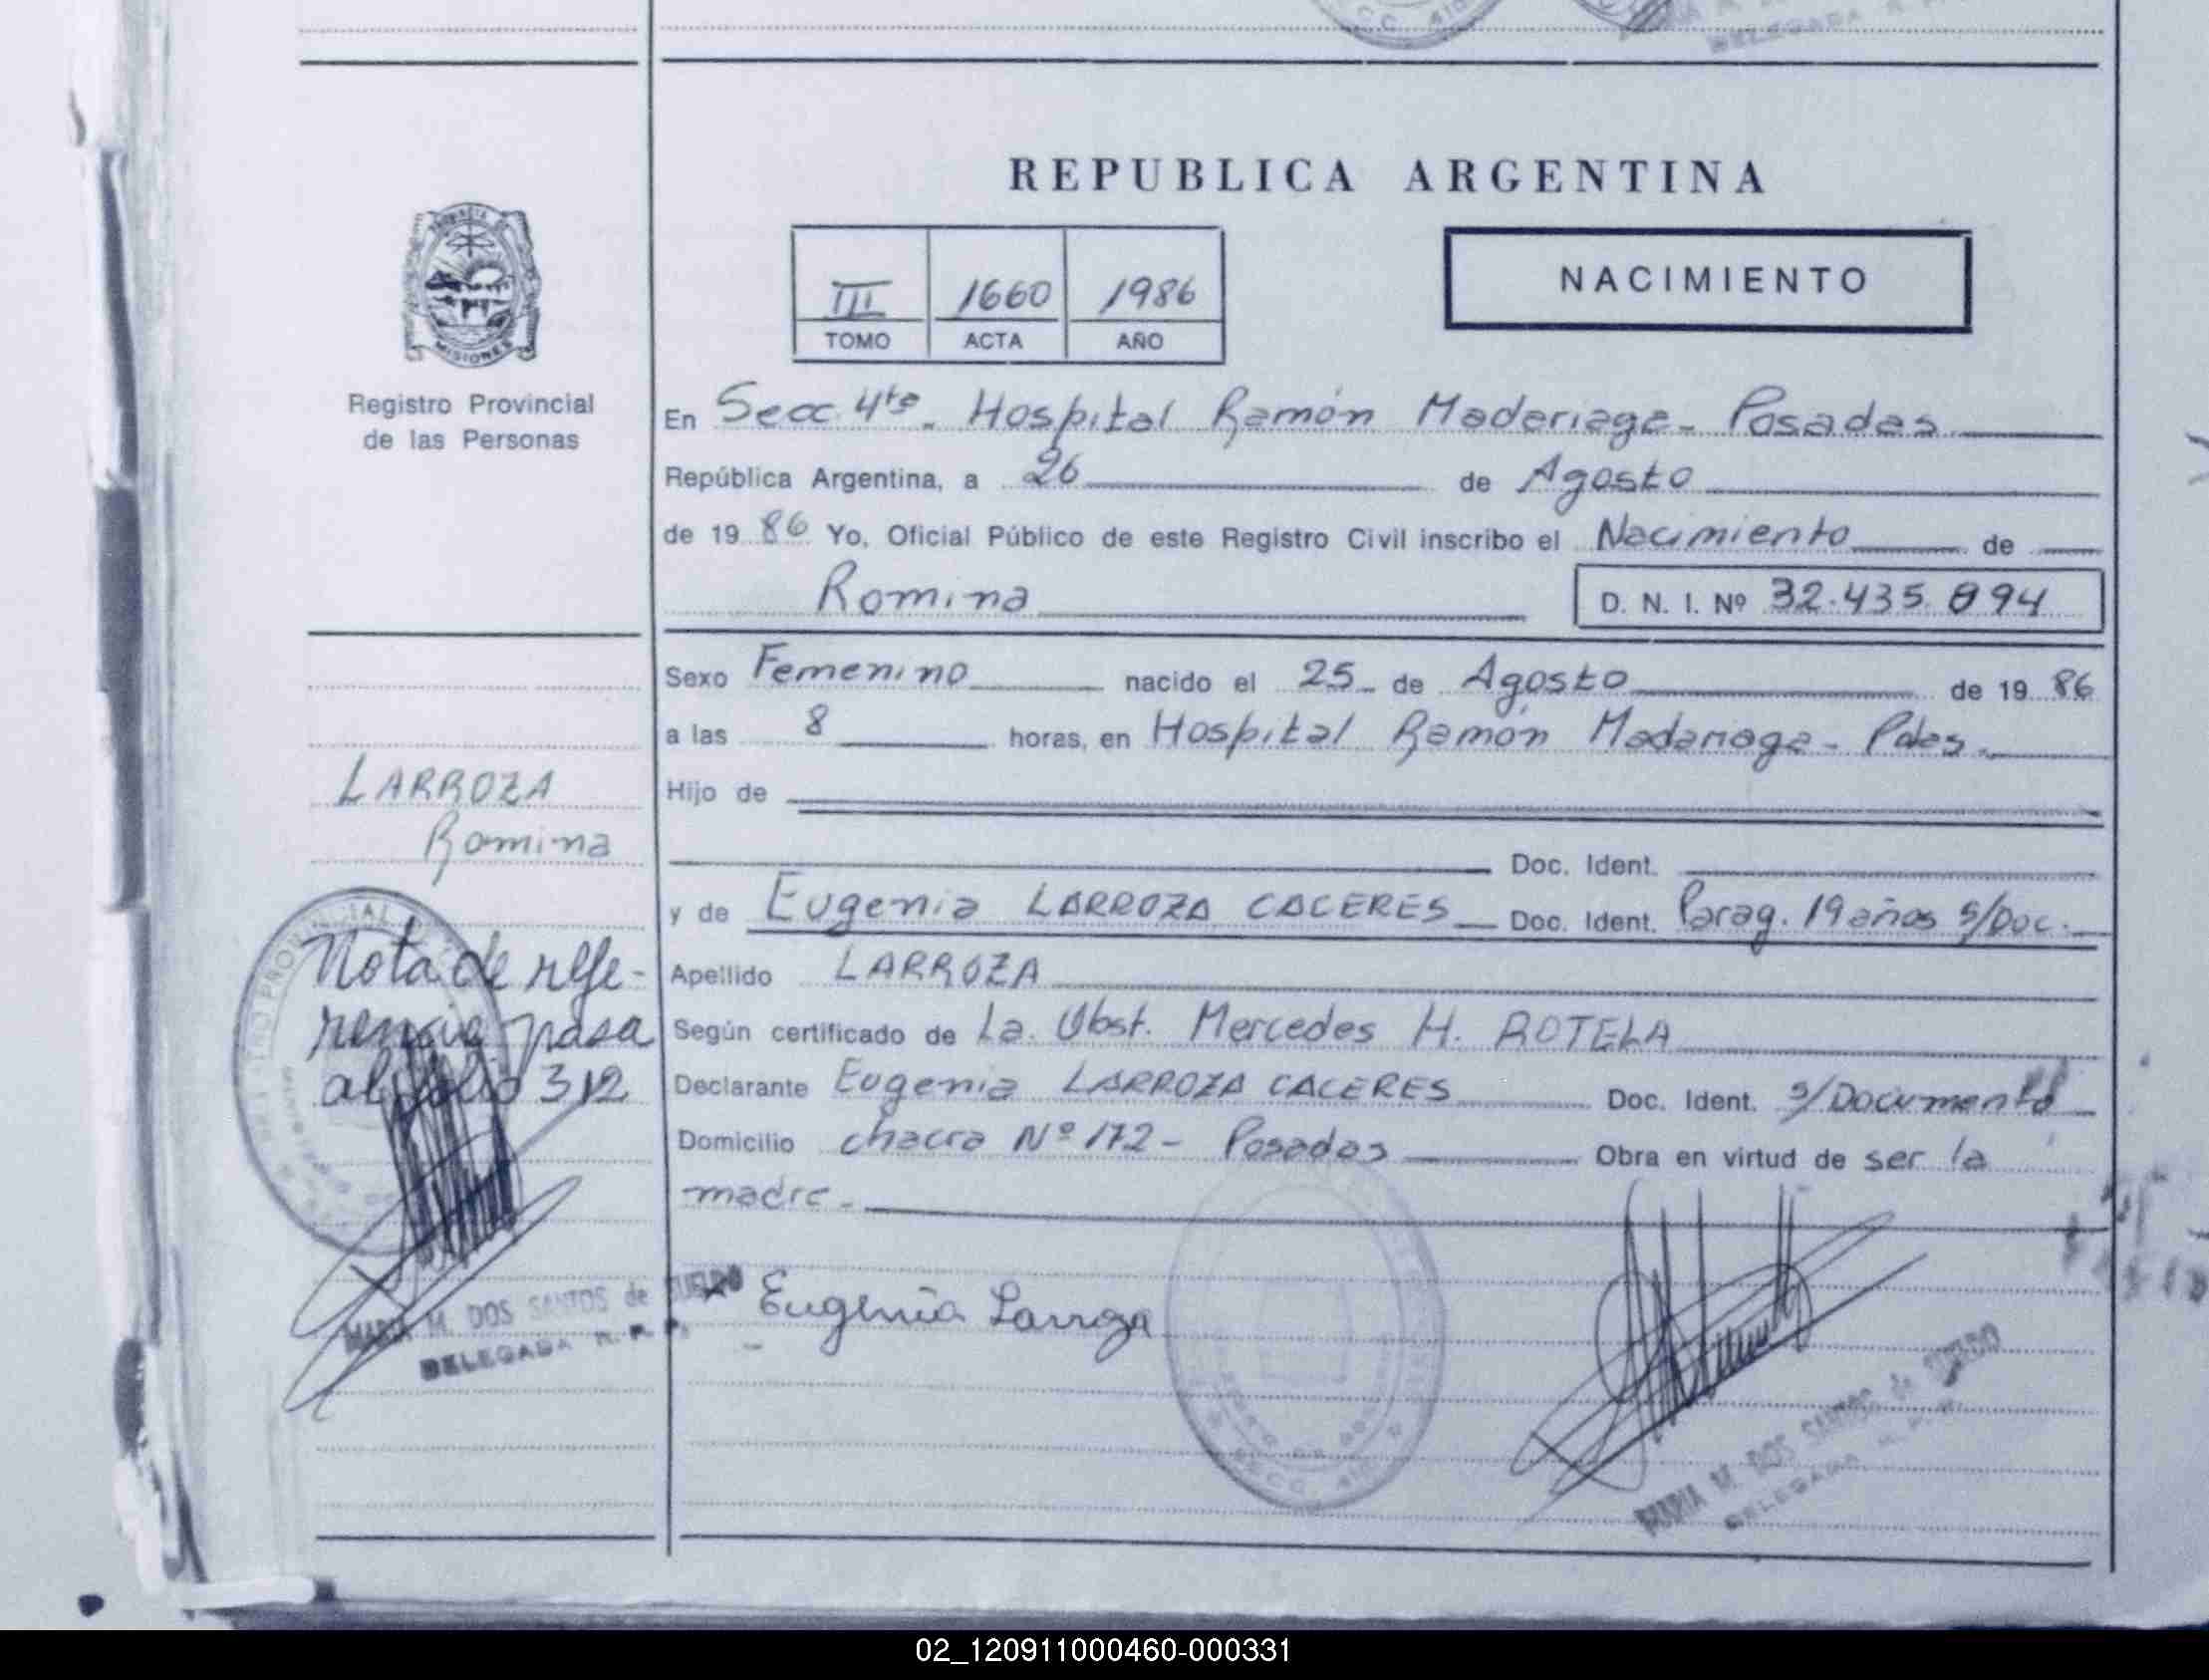 REPUBLICA ARGENTINA
III 1660 1986
TOMO ACTA AÑO
NACIMIENTO
MISIONES
Registro Provincial
de las Personas
En Secc 4ta. Hospital Ramón Madariaga - Posadas
República Argentina, a 26 de Agosto
de 19 86 Yo, Oficial Público de este Registro Civil inscribo el Nacimiento de
Romina D. N. I. Nº 32.435.894
Sexo Femenino nacido el 25 de Agosto de 19 86
a las 8 horas, en Hospital Ramón Madariaga - Pdas.
Hijo de
Doc. Ident.
y de Eugenia LARROZA CACERES Doc. Ident. Parag. 19 años s/Doc.
Apellido LARROZA
Según certificado de La. Obst. Mercedes H. ROTELA
Declarante Eugenia LARROZA CACERES Doc. Ident. s/Documento
Domicilio chacra Nº 172 - Posadas Obra en virtud de ser la
madre -
LARROZA
Romina
Nota de refe-
rencia pasa
al folio 312
MARIA M. DOS SANTOS de SUELDO
DELEGADA R. P. P.
Eugenia Larroza
MARIA M. DOS SANTOS de SUELDO
DELEGADA
02_120911000460-000331